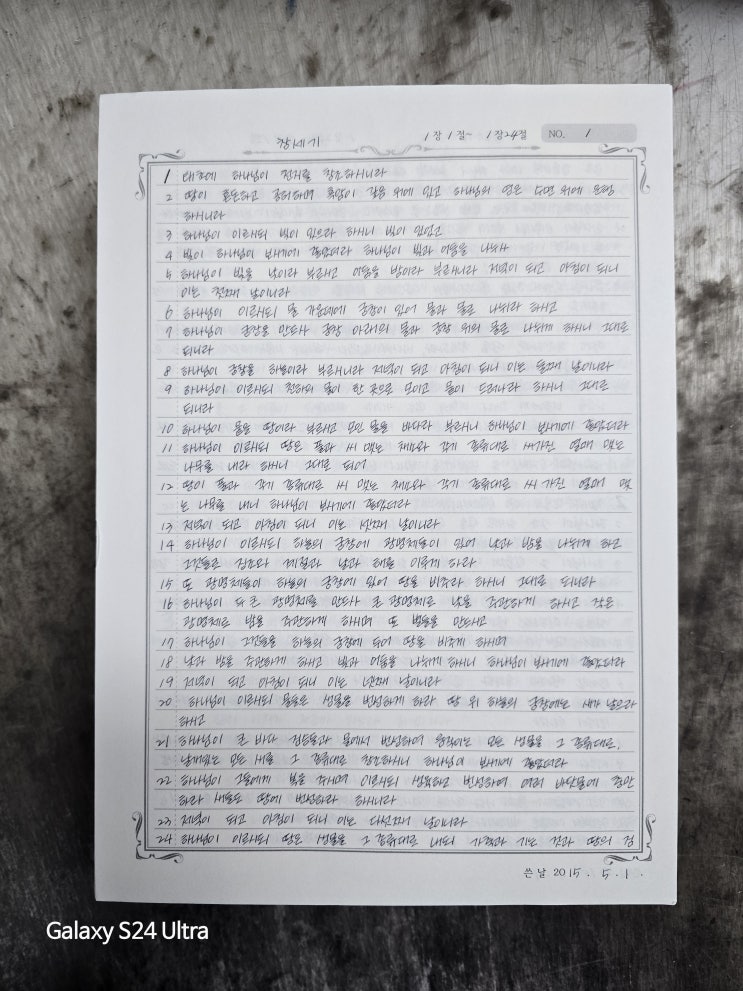 창세기 1장 1절~ 1장24절 NO. 1
1 태초에 하나님이 천지를 창조하시니라
2 땅이 혼돈하고 공허하며 흑암이 깊음 위에 있고 하나님의 영은 수면 위에 운행
하시니라
3 하나님이 이르시되 빛이 있으라 하시니 빛이 있었고
4 빛이 하나님이 보시기에 좋았더라 하나님이 빛과 어둠을 나누사
5 하나님이 빛을 낮이라 부르시고 어둠을 밤이라 부르시니라 저녁이 되고 아침이 되니
이는 첫째 날이니라
6 하나님이 이르시되 물 가운데에 궁창이 있어 물과 물로 나뉘라 하시고
7 하나님이 궁창을 만드사 궁창 아래의 물과 궁창 위의 물로 나뉘게 하시니 그대로
되니라
8 하나님이 궁창을 하늘이라 부르시니라 저녁이 되고 아침이 되니 이는 둘째 날이니라
9 하나님이 이르시되 천하의 물이 한 곳으로 모이고 뭍이 드러나라 하시니 그대로
되니라
10 하나님이 뭍을 땅이라 부르시고 모인 물을 바다라 부르시니 하나님이 보시기에 좋았더라
11 하나님이 이르시되 땅은 풀과 씨 맺는 채소와 각기 종류대로 씨가진 열매 맺는
나무를 내라 하시니 그대로 되어
12 땅이 풀과 각기 종류대로 씨 맺는 채소와 각기 종류대로 씨 가진 열매 맺
는 나무를 내니 하나님이 보시기에 좋았더라
13 저녁이 되고 아침이 되니 이는 셋째 날이니라
14 하나님이 이르시되 하늘의 궁창에 광명체들이 있어 낮과 밤을 나뉘게 하고
그것들로 징조와 계절과 날과 해를 이루게 하라
15 또 광명체들이 하늘의 궁창에 있어 땅을 비추라 하시니 그대로 되니라
16 하나님이 두 큰 광명체를 만드사 큰 광명체로 낮을 주관하게 하시고 작은
광명체로 밤을 주관하게 하시며 또 별들을 만드시고
17 하나님이 그것들을 하늘의 궁창에 두어 땅을 비추게 하시며
18 낮과 밤을 주관하게 하시고 빛과 어둠을 나뉘게 하시니 하나님이 보시기에 좋았더라
19 저녁이 되고 아침이 되니 이는 넷째 날이니라
20 하나님이 이르시되 물들은 생물을 번성하게 하라 땅 위 하늘의 궁창에는 새가 날으라
하시고
21 하나님이 큰 바다 짐승들과 물에서 번성하여 움직이는 모든 생물을 그 종류대로,
날개있는 모든 새를 그 종류대로 창조하시니 하나님이 보시기에 좋았더라
22 하나님이 그들에게 복을 주시며 이르시되 생육하고 번성하여 여러 바닷물에 충만
하라 새들도 땅에 번성하라 하시니라
23 저녁이 되고 아침이 되니 이는 다섯째 날이니라
24 하나님이 이르시되 땅은 생물을 그 종류대로 내되 가축과 기는 것과 땅의 짐
쓴날 2015. 5. 1.
Galaxy S24 Ultra